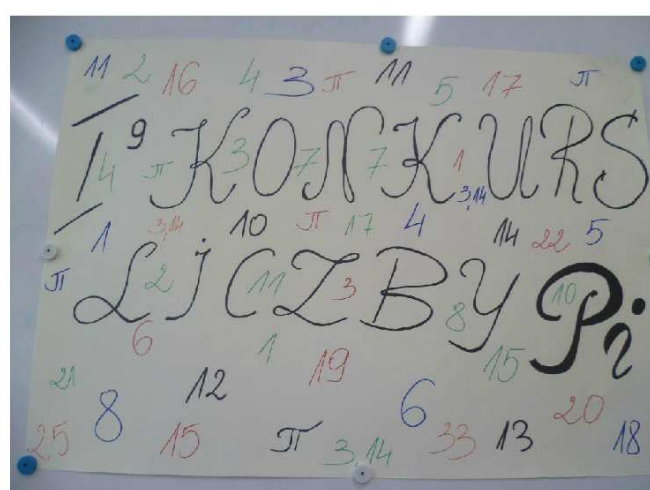 11 2 16 4 3 π 11 5 17 π
I 9 4 π KONKURS 3 7 7 1 3,14
1 3,14 10 π 17 4 14 22 5
π LICZBY Pi 2 11 3 8 10
6 1 19 15
21 8 12 6 20
25 15 π 3,14 33 13 18